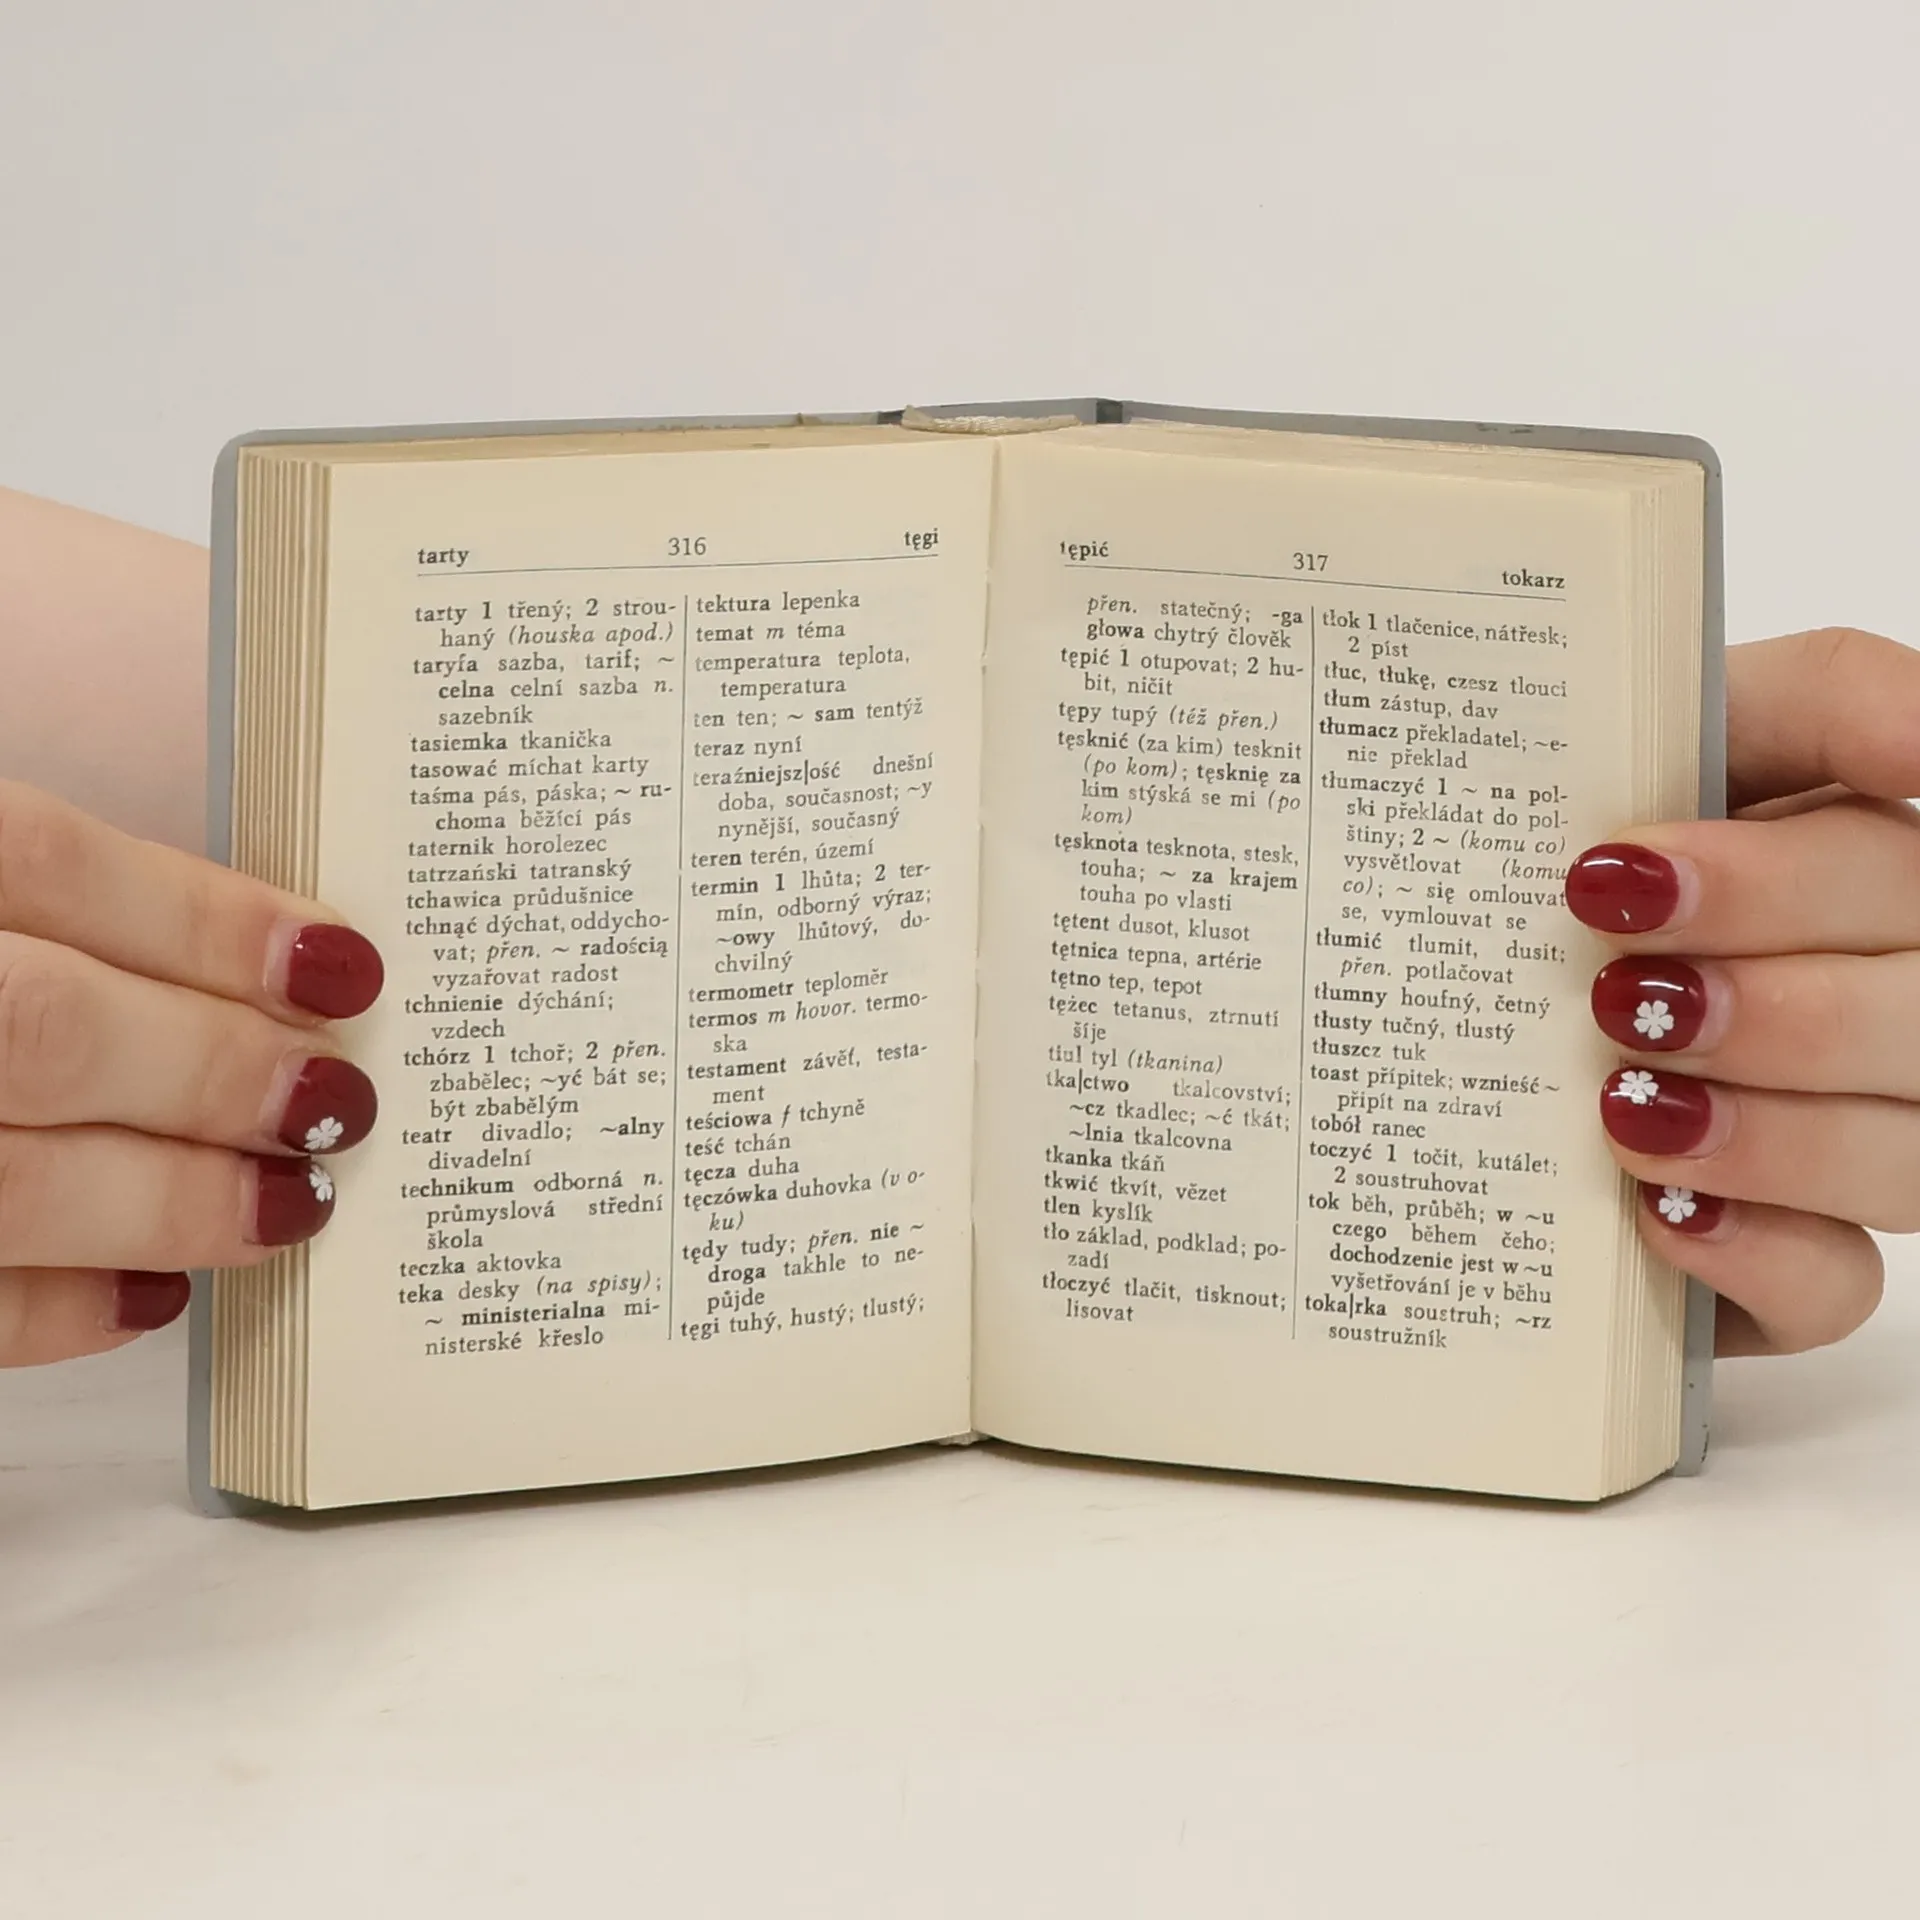 tarty 316 tęgi
tarty 1 třený; 2 strou-
haný (houska apod.)
taryfa sazba, tarif; ~
celna celní sazba n.
sazebník
tasiemka tkanička
tasować míchat karty
taśma pás, páska; ~ ru-
choma běžící pás
taternik horolezec
tatrzański tatranský
tchawica průdušnice
tchnąć dýchat, oddycho-
vat; přen. ~ radością
vyzařovat radost
tchnienie dýchání;
vzdech
tchórz 1 tchoř; 2 přen.
zbabělec; ~yć bát se;
být zbabělým
teatr divadlo; ~alny
divadelní
technikum odborná n.
průmyslová střední
škola
teczka aktovka
teka desky (na spisy);
~ ministerialna mi-
nisterské křeslo
tektura lepenka
temat m téma
temperatura teplota,
temperatura
ten ten; ~ sam tentýž
teraz nyní
teraźniejsz|ość dnešní
doba, současnost; ~y
nynější, současný
teren terén, území
termin 1 lhůta; 2 ter-
mín, odborný výraz;
~owy lhůtový, do-
chvilný
termometr teploměr
termos m hovor. termo-
ska
testament závěť, testa-
ment
teściowa f tchyně
teść tchán
tęcza duha
tęczówka duhovka (v o-
ku)
tędy tudy; přen. nie ~
droga takhle to ne-
půjde
tęgi tuhý, hustý; tlustý;
tępić 317 tokarz
přen. statečný; -ga
głowa chytrý člověk
tępić 1 otupovat; 2 hu-
bit, ničit
tępy tupý (též přen.)
tęsknić (za kim) tesknit
(po kom); tęsknię za
kim stýská se mi (po
kom)
tęsknota tesknota, stesk,
touha; ~ za krajem
touha po vlasti
tętent dusot, klusot
tętnica tepna, artérie
tętno tep, tepot
tężec tetanus, ztrnutí
šíje
tiul tyl (tkanina)
tka|ctwo tkalcovství;
~cz tkadlec; ~ć tkát;
~lnia tkalcovna
tkanka tkáň
tkwić tkvít, vězet
tlen kyslík
tło základ, podklad; po-
zadí
tłoczyć tlačit, tisknout;
lisovat
tłok 1 tlačenice, nátřesk;
2 píst
tłuc, tłukę, czesz tlouci
tłum zástup, dav
tłumacz překladatel; ~e-
nie překlad
tłumaczyć 1 ~ na pol-
ski překládat do pol-
štiny; 2 ~ (komu co)
vysvětlovat (komu
co); ~ się omlouvat
se, vymlouvat se
tłumić tlumit, dusit;
přen. potlačovat
tłumny houfný, četný
tłusty tučný, tlustý
tłuszcz tuk
toast přípitek; wznieść ~
připít na zdraví
toból ranec
toczyć 1 točit, kutálet;
2 soustruhovat
tok běh, průběh; w ~u
czego během čeho;
dochodzenie jest w ~u
vyšetřování je v běhu
toka|rka soustruh; ~rz
soustružník